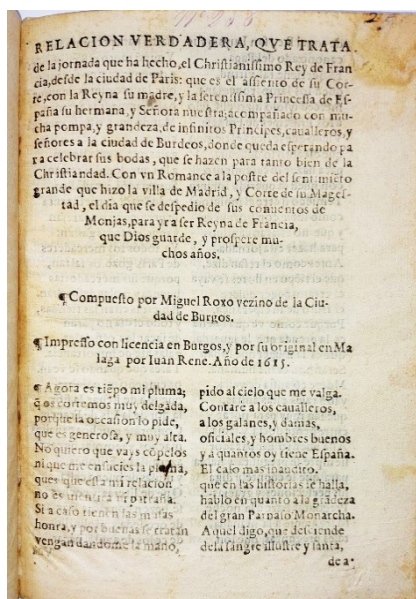 RELACION VERDADERA, QVE TRATA.
de la jornada que ha hecho, el Christianissimo Rey de Fran
cia, desde la ciudad de Paris: que es el assiento de su Cor-
te, con la Reyna su madre, y la serenissima Princessa de Es-
paña su hermana, y Señora nuestra; acompañado con mu-
cha pompa, y grandeza, de infinitos Principes, caualleros, y
señores a la ciudad de Burdeos, donde queda esperando pa
ra celebrar sus bodas, que se hazen para tanto bien de la
Christiandad. Con vn Romance a la postre del sentimiẽto
grande que hizo la villa de Madrid, y Corte de su Mages-
tad, el dia que se despedio de sus conuentos de
Monjas, para yr a ser Reyna de Francia,
que Dios guarde, y prospere mu-
chos años.
¶ Compuesto por Miguel Roxo vezino de la Ciu-
dad de Burgos.
¶ Impresso con licencia en Burgos, y por su original en Ma
laga por Iuan Rene. Año de 1615.
¶ Agora es tiẽpo mi pluma;
q̃ os cortemos muy delgada,
porque la occasion lo pide,
que es generosa, y muy alta.
No quiero que vays cõpelos
ni que me ensucies la
ques que esta mi relacion
no es mentira ni patraña.
Si a caso tienen las mias
honra, y por buenas se tratan
vengan dandome la mano,
pido al cielo que me valga.
Contarè a los caualleros,
a los galanes, y damas,
oficiales, y hombres buenos
y a quantos oy tiene España.
El caso mas inaudito.
que en las historias se halla,
hablo en quanto a la grãdeza
del gran Parnaso Monarcha.
Aquel digo, que desciende
de la sangre illustre y santa,
de a